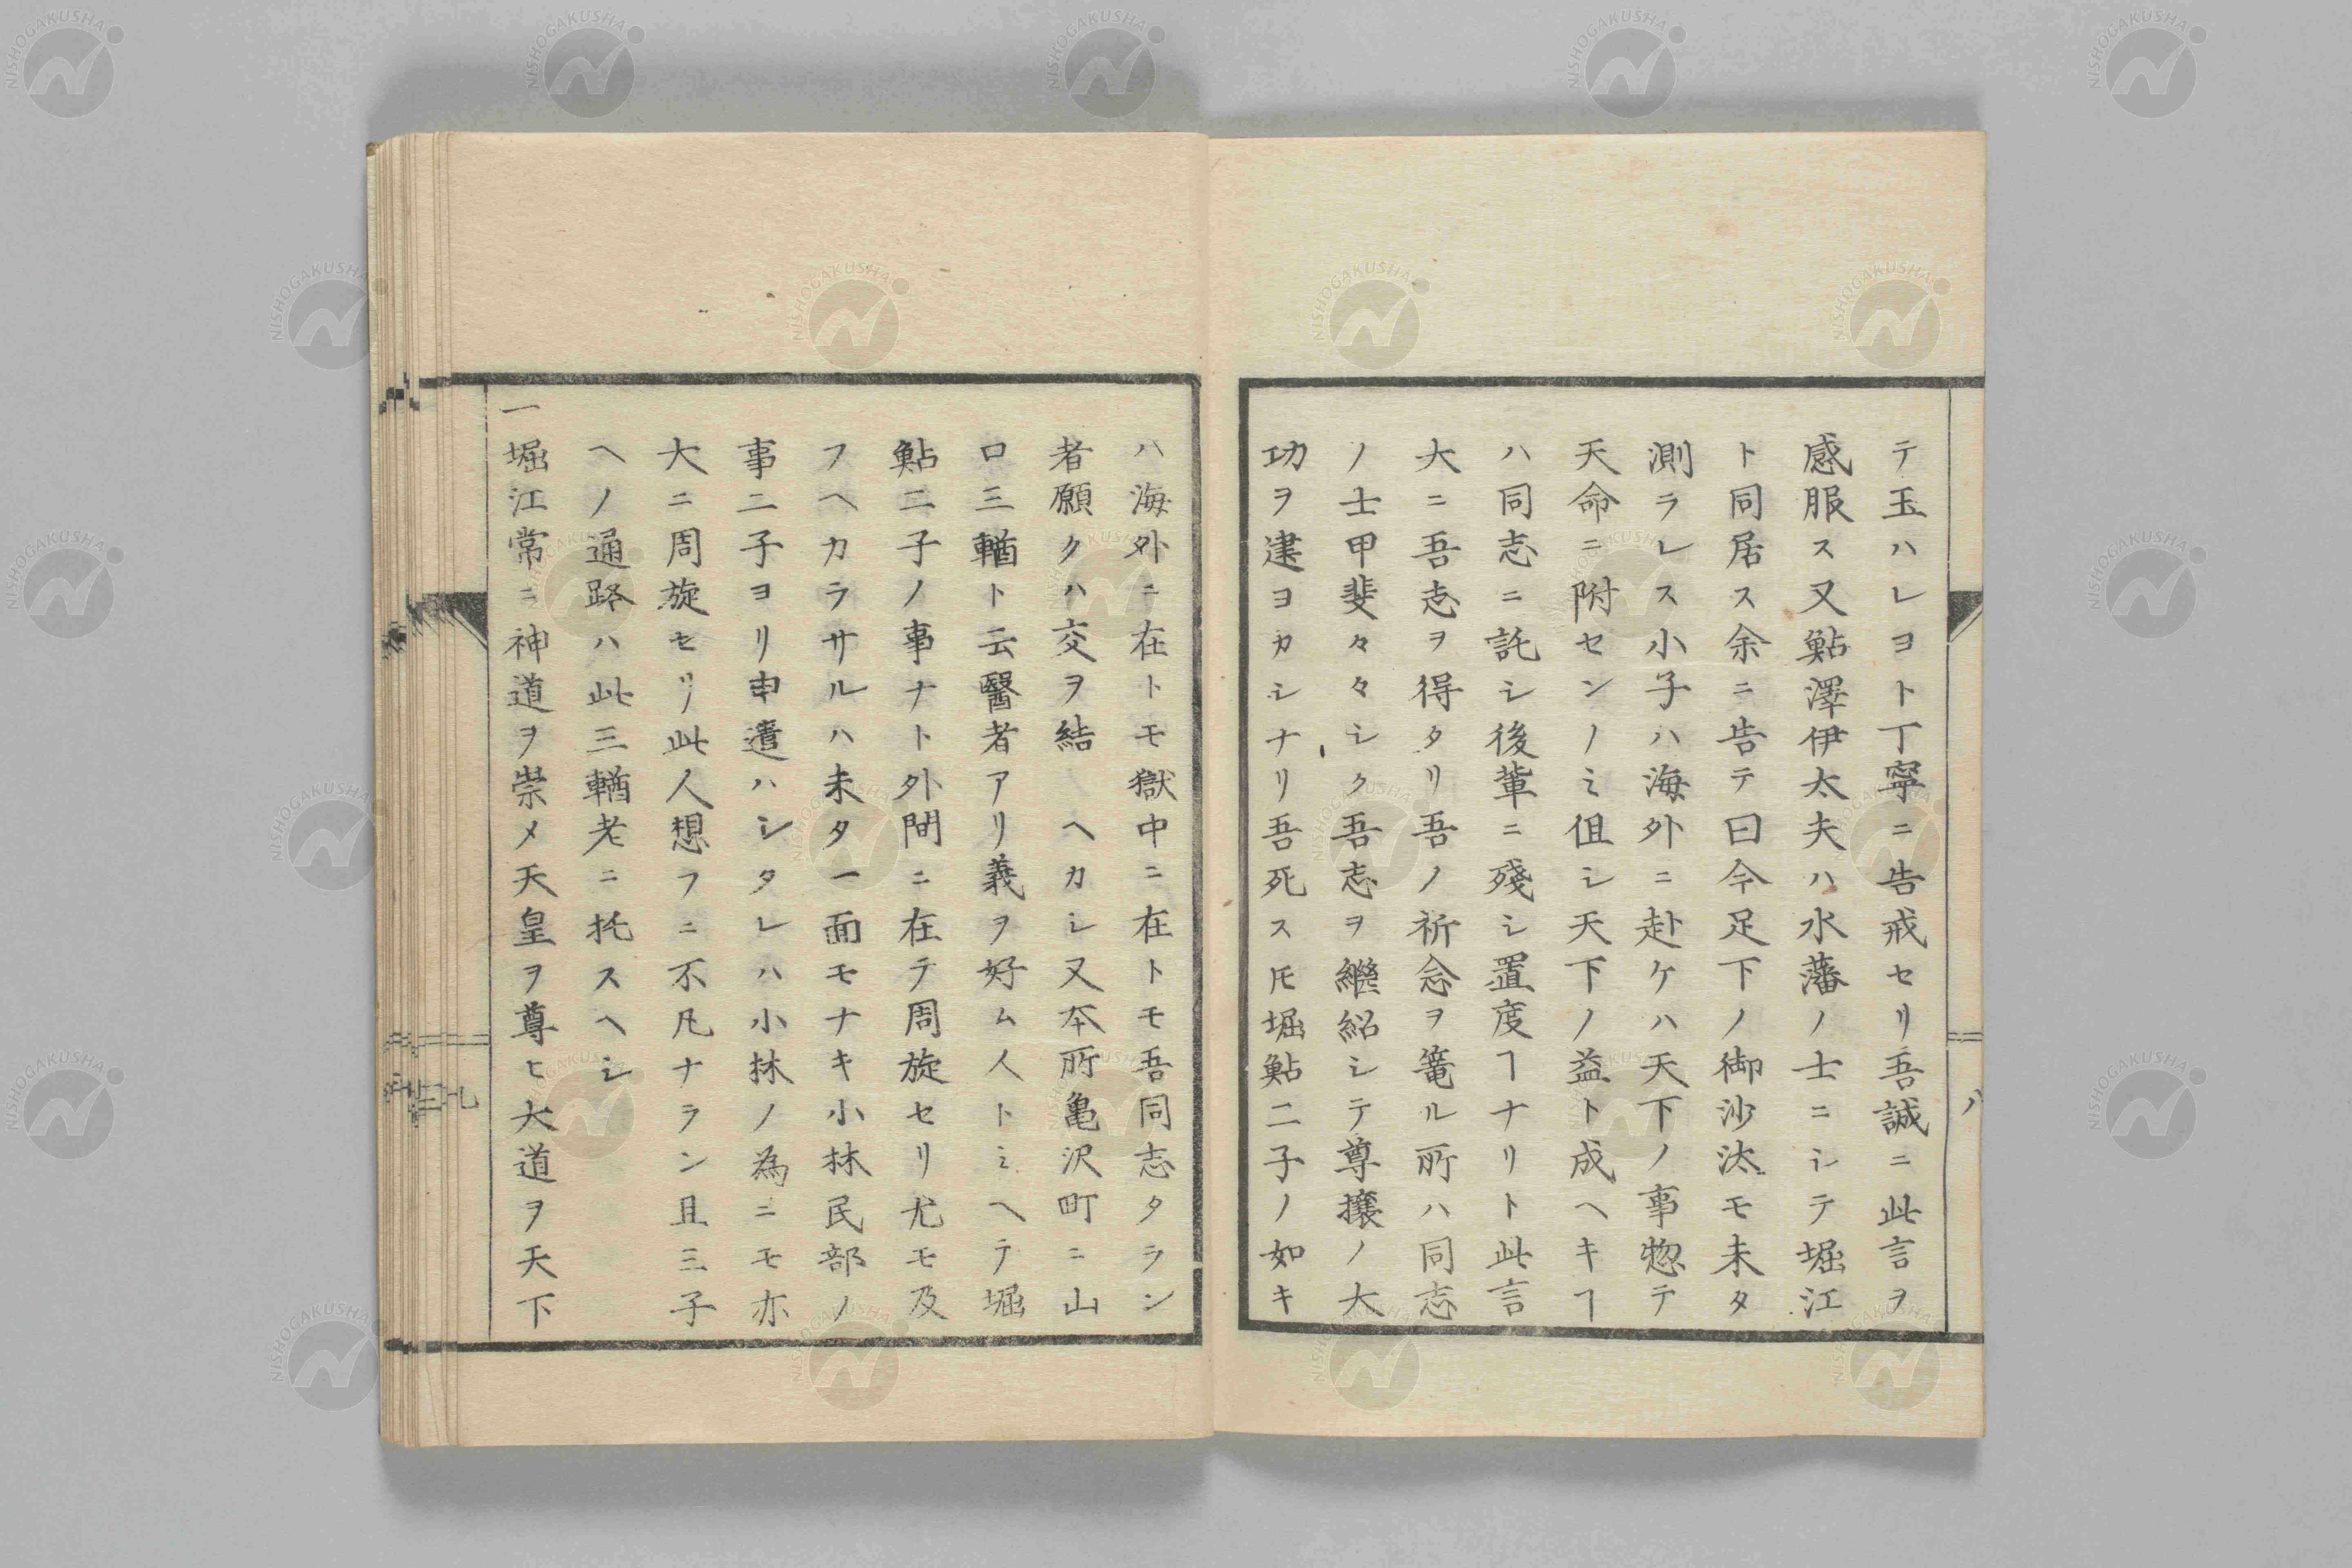 テ玉ハレヨト丁寧ニ告戒セリ吾誠ニ此言ヲ
感服ス又鮎澤伊太夫ハ水藩ノ士ニシテ堀江
ト同居ス余ニ告テ曰今足下ノ御沙汰モ未タ
測ラレス小子ハ海外ニ赴ケハ天下ノ事惣テ
天命ニ附センノミ伹シ天下ノ益ト成ヘキヿ
ハ同志ニ託シ後輩ニ殘シ置度ヿナリト此言
大ニ吾志ヲ得タリ吾ノ祈念ヲ篭ル所ハ同志
ノ士甲斐々々シク吾志ヲ繼紹シテ尊攘ノ大
功ヲ建ヨカシナリ吾死スㇳモ堀鮎二子ノ如キ
八
ハ海外ニ在トモ獄中ニ在トモ吾同志タラン
者願クハ交ヲ結ヘカシ又本所亀沢町ニ山
口三輶ト云醫者アリ義ヲ好ム人トミヘテ堀
鮎二子ノ事ナト外間ニ在テ周旋セリ尤モ及
フヘカラサルハ未タ一面モナキ小林民部ノ
事二子ヨリ申遣ハシタレハ小林ノ為ニモ亦
大ニ周旋セリ此人想フニ不凡ナラン且三子
ヘノ通路ハ此三輶老ニ托スヘシ
一堀江常ニ神道ヲ崇メ天皇ヲ尊ヒ大道ヲ天下
NISHOGAKUSHA